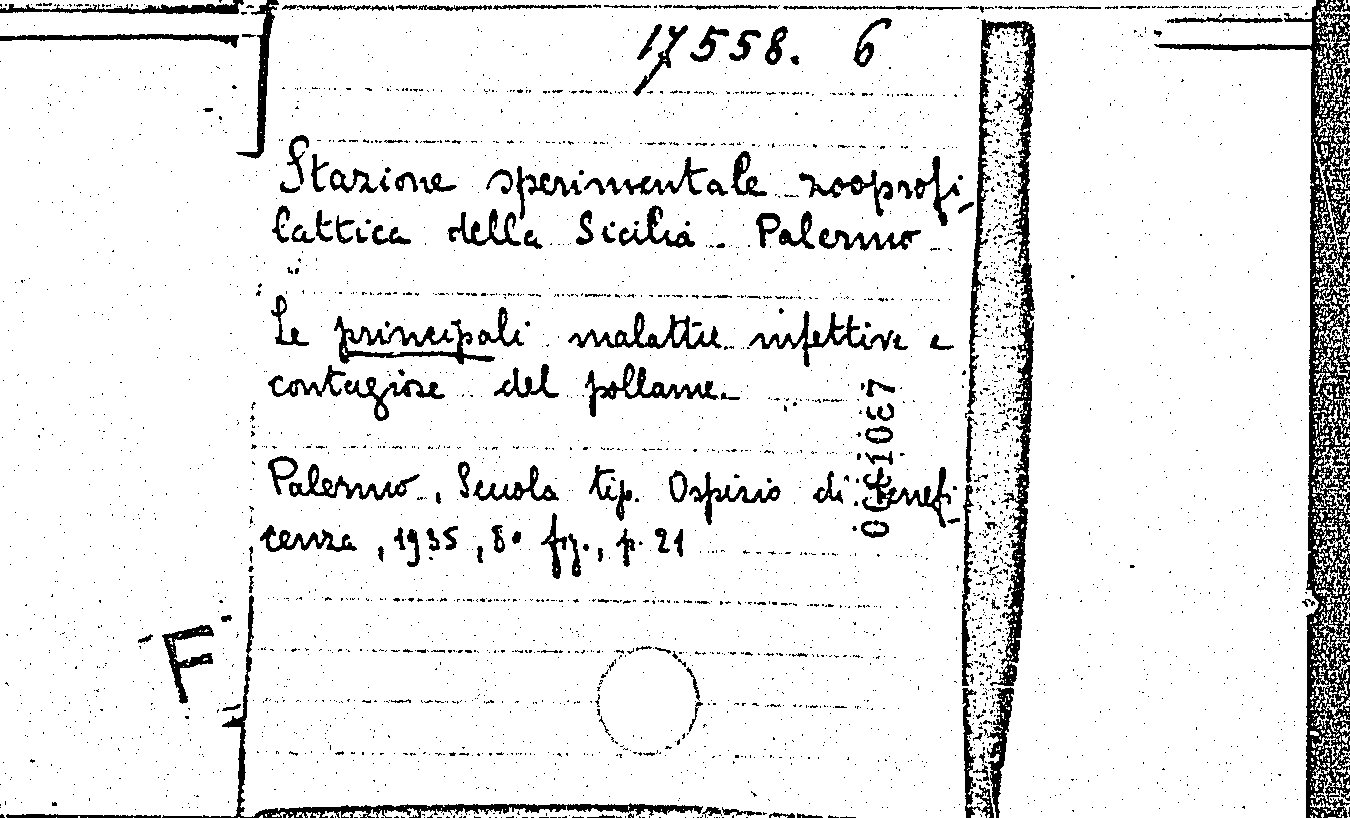 17558. 6
Stazione sperimentale zooprofi-
lattica della Sicilia. Palermo
Le principali malattie infettive e
contagiose del pollame.
Palermo, Scuola tip. Ospizio di benefi-
cenza, 1935, 8° fig., p. 21
F